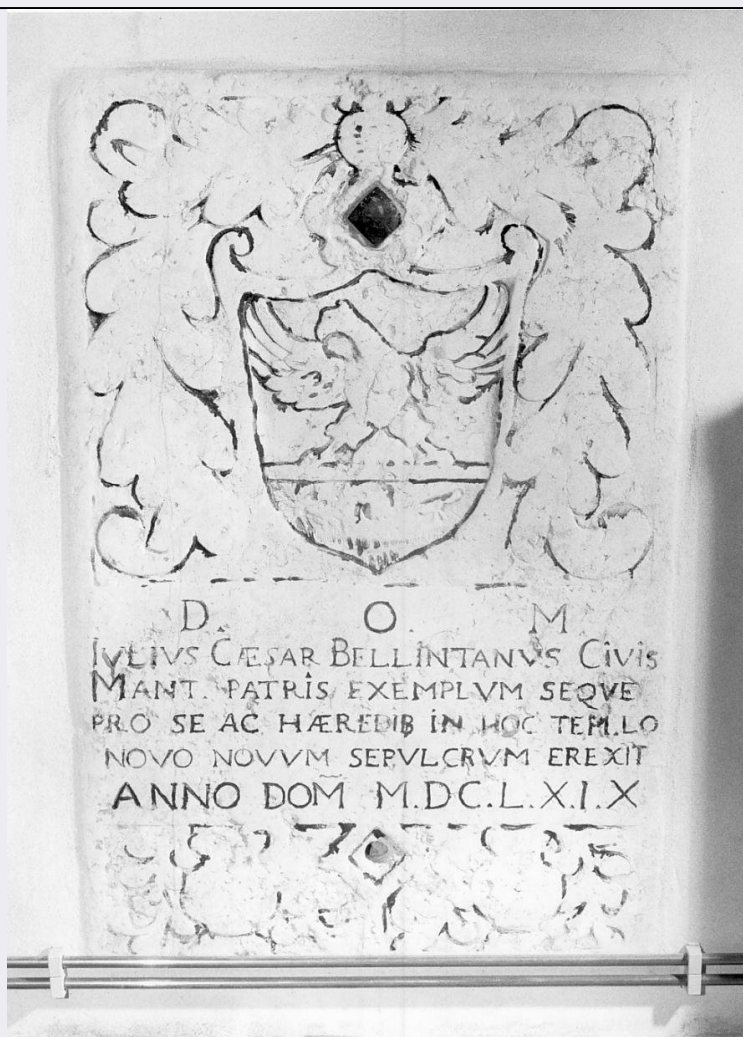 D. O. M
IVLIVS CÆSAR BELLINTANVS CIVIS
MANT. PATRIS EXEMPLVM SEQVE
PRO SE AC HÆREDIB IN HOC TEMPLO
NOVO NOVVM SEPVLCRVM EREXIT
ANNO DOM̅ M.DC.L.X.I.X